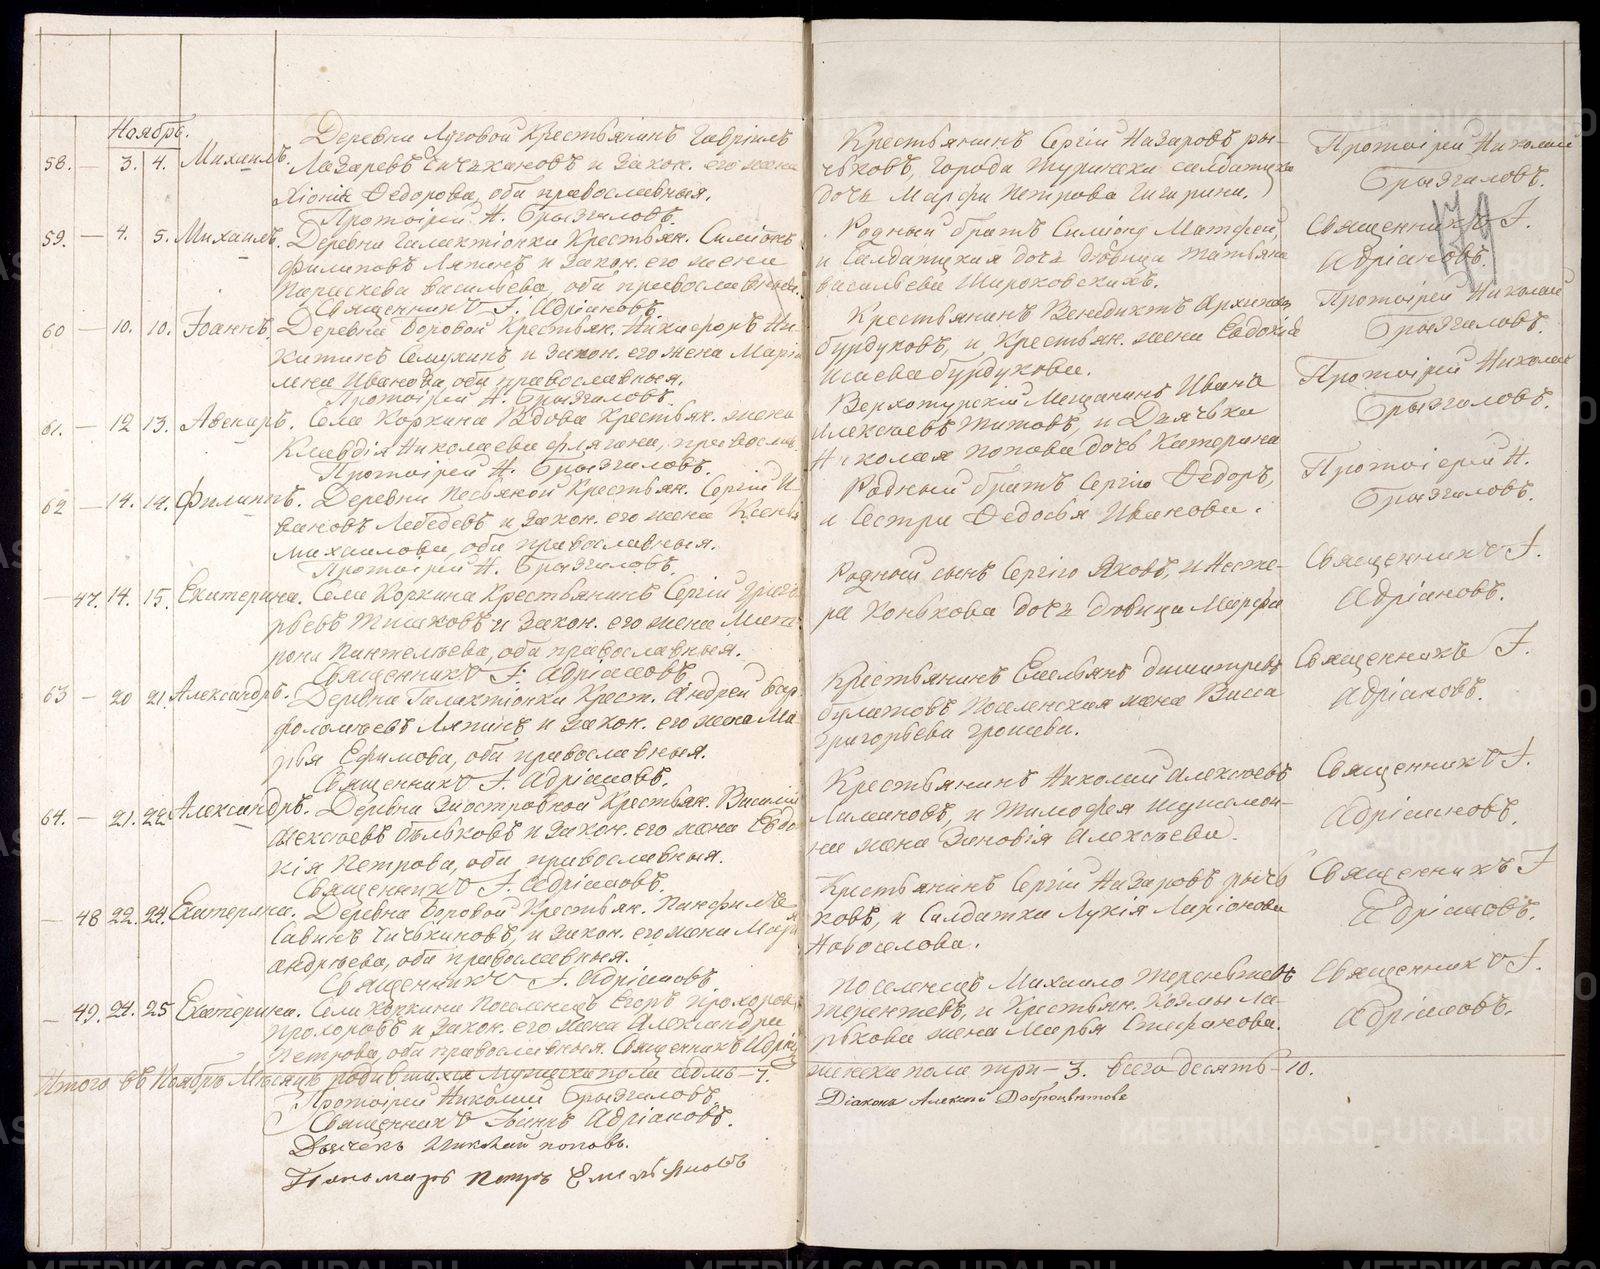 Ноябрь.
58. — 3. 4. Михаилъ. Деревни Луговой Крестьянинъ Гавріилъ
Лазаревъ Чичькановъ и закон. его жена
Хіонія Ѳедорова, оба православныя.
Протоіерей Н. Брызгаловъ.
59. — 4. 5. Михаилъ. Деревни Галактіонки Крестьян. Симіонъ
Филиповъ Ляпинъ и закон. его жена
Параскева Васильева, оба православныя.
Священникъ І. Адріановъ.
60 — 10. 10. Іоаннъ. Деревни Боровой Крестьян. Никифоръ Ни-
китинъ Семухинъ и закон. его жена Марія
Иванова, оба православныя.
Протоіерей Н. Брызгаловъ.
61. — 12 13. Авениръ. Села Коркина Вдова Крестьян. жена
Клавдія Николаева Флягина, православ.
Протоіерей Н. Брызгаловъ.
62 — 14. 14. Филиппъ. Деревни Песьяной Крестьян. Сергій И-
вановъ Лебедевъ и закон. его жена Ксенья
Михаилова, оба православныя.
Протоіерей Н. Брызгаловъ.
— 47. 14. 15. Екатерина. Села Коркина Крестьянинъ Сергій Григо-
рьевъ Тишковъ и закон. его жена Мат-
рона Пантелѣева, оба православныя.
Священникъ І. Адріановъ.
63 — 20 21. Александръ. Деревни Галактіонки Крест. Андрей Вар-
фоломѣевъ Ляпинъ и закон. его жена Ма-
рья Ефимова, оба православныя.
Священникъ І. Адріановъ.
64. — 21. 22 Александръ. Деревни Заостровной Крестьян. Василій
Алексѣевъ Бѣльковъ и закон. его жена Евдо-
кія Петрова, оба православныя.
Священникъ І. Адріановъ.
— 48 22. 24. Екатерина. Деревни Боровой Крестьян. Панфилъ
Савинъ Чичькановъ, и закон. его жена Марія
Андрѣева, оба православныя.
Священникъ І. Адріановъ.
— 49. 24. 25 Екатерина. Села Коркина Поселенецъ Егоръ Прохоровъ
Прохоровъ и закон. его жена Александра
Петрова, оба православныя. Священникъ І. Адріа
Итого въ Ноябрѣ Мѣсяцѣ родившихся мужеска пола седмь — 7.
Протоіерей Николай Брызгаловъ.
Священникъ Іоаннъ Адріановъ.
Дьячекъ Николай Поповъ.
Пономарь Петръ Емельяновъ
Крестьянинъ Сергій Назаровъ Ры-
чьковъ, города Туринска салдатска
дочь Марфа Петрова Гигирина.
Родный братъ Симіону Матфей,
и Салдатская дочь дѣвица Татьяна
Васильева Широковскихъ.
Крестьянинъ Венедиктъ Архипов
Бурдуковъ, и Крестьян. жена Евдокія
Исаева Бурдукова.
Верхотурскій Мещанинъ Иванъ
Алексѣевъ Титовъ, и Дьячька
Николая Попова дочь Катерина
Родный братъ Сергію Ѳедоръ,
и Сестра Ѳедосья Иванова.
Родный сынъ Сергію Яковъ, и Несте-
ра Конькова дочь дѣвица Марфа
Крестьянинъ Емельянъ Димитревъ
Булатовъ Поселенская жена Васса
Григорьева Грошева.
Крестьянинъ Николай Алексѣевъ
и Тимофея
на жена Зиновія Алексѣева.
Крестьянинъ Сергій Назаровъ Рычь
ковъ, и Салдатка Лукія Ларіонова
Новоселова.
Поселенецъ Михаило Терентьевъ
Терентевъ, и Крестьян. Козьмы Ла-
рькова жена Марья Стефанова.
женска пола три — 3. всего десять — 10.
Діаконъ Алексѣй Доброцвѣтовъ
Протоіерей Николай
Брызгаловъ.
Священникъ І.
Адріановъ.
Протоіерей Николай
Брызгаловъ.
Протоіерей Николай
Брызгаловъ.
Протоіерей Н.
Брызгаловъ.
Священникъ І.
Адріановъ.
Священникъ І.
Адріановъ.
Священникъ І.
Адріановъ.
Священникъ І
Адріановъ.
Священникъ І.
Адріановъ.
METRIKI.GASO-URAL.RU